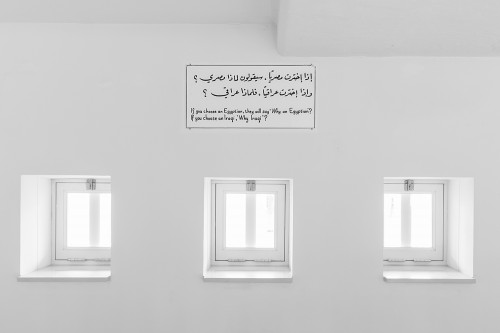 إذا إخترت مصريًا، سيقولون لماذا مصري ؟
وإذا إخترت عراقيًا، فلماذا عراقي ؟
If you choose an Egyptian, they will say "Why an Egyptian"?
If you choose an Iraqi, "Why Iraqi"?